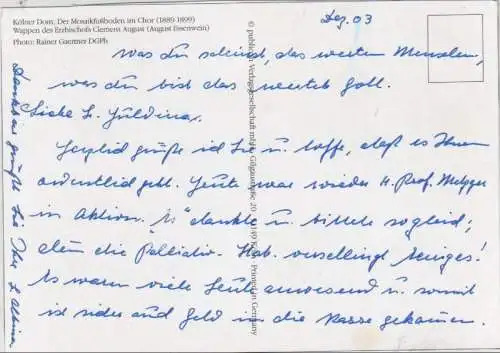 Kölner Dom: Der Mosaikfußboden im Chor (1889-1899)
Wappen des Erzbischofs Clemens August (August Essenwein)
Photo: Rainer Gaertner DGPh
Dez. 03
Was du scheinst, das werten Menschen,
was du bist das wertet Gott.
Liebe
Herzlich grüße ich Sie u. hoffe, daß es Ihnen
ordentlich geht. Heute war wieder H. Prof. Metzger
in Aktion. "Er" dankte u. bittete sogleich;
denn die Palliativ. Stat. verschlingt einiges!
Es waren viele Leute anwesend u. somit
ist sicher auch Geld in die Kasse gekommen.
Dankbar grüßt Sie Ihre
© publikom Verlagsgesellschaft mbH
Printed in Germany